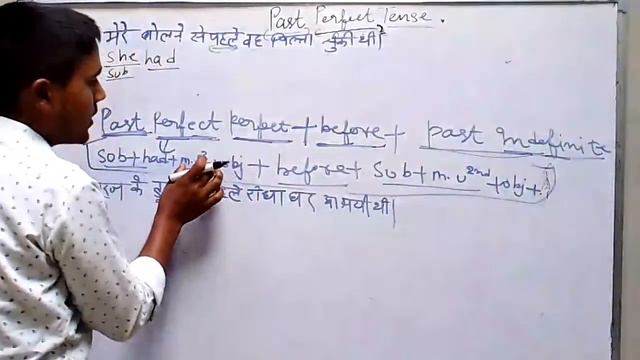 Past Perfect Tense.
मेरे बोलने से पहले वह चिल्ला चुकी थी।
She had
Sub
Past Perfect perfect + before + Past Indefinite
Sub + had + m. obj + before + Sub + m.v 2nd + obj + .
के पहले राधा घर आ गयी थी।